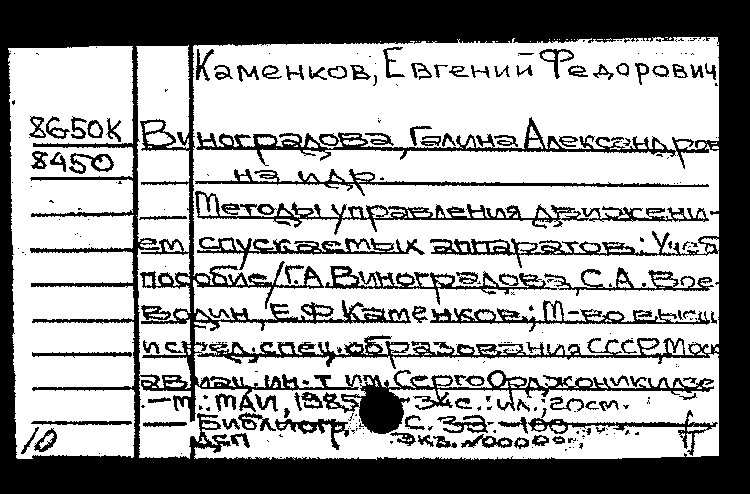 Каменков, Евгений Федорович
8650К
Виноградова, Галина Александров
8450
на и др.
Методы управления движени-
ем спускаемых аппаратов: Учеб
пособие / Г.А. Виноградова, С.А. Вое-
водин, Е.Ф. Каменков.; М-во высш
и сред. спец. образования СССР, Моск
авиац. ин-т им. Серго Орджоникидзе
.—М.: МАИ, 1985 34с.: ил.; 20см.
Библиогр. С. 32. —100
ДСП Экз. N00000
10